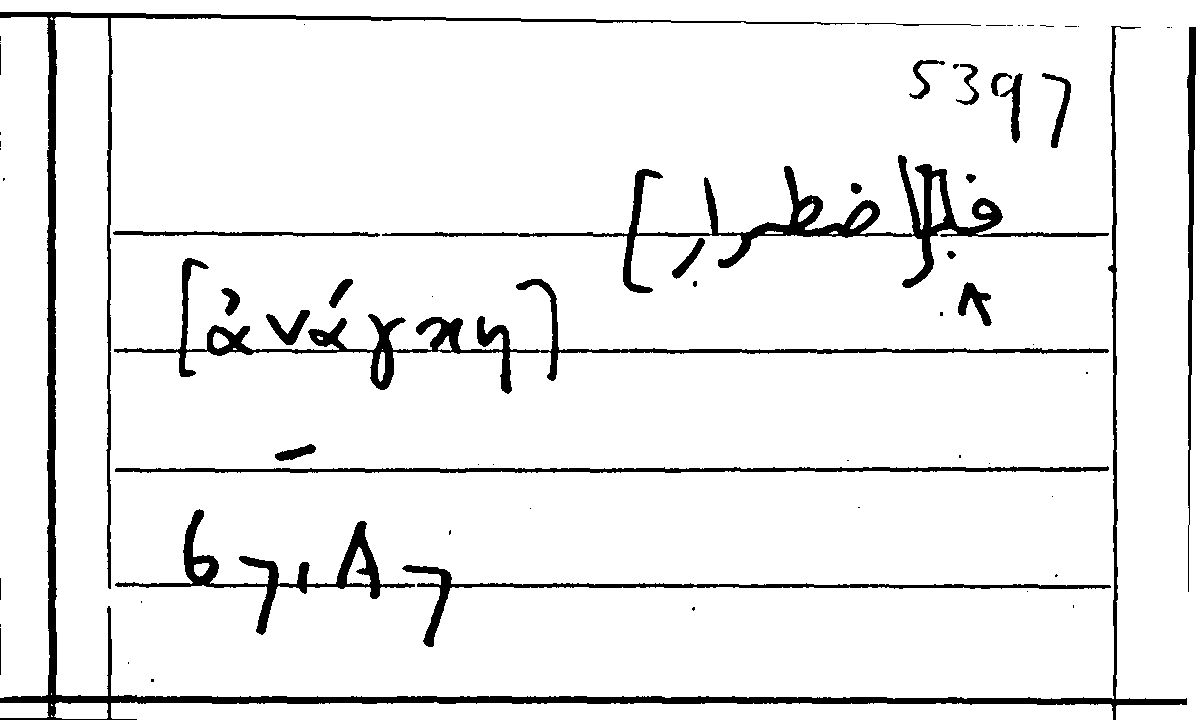 5397
ف[بالاضطرار]
[ἀνάγκη]
–
67,A7